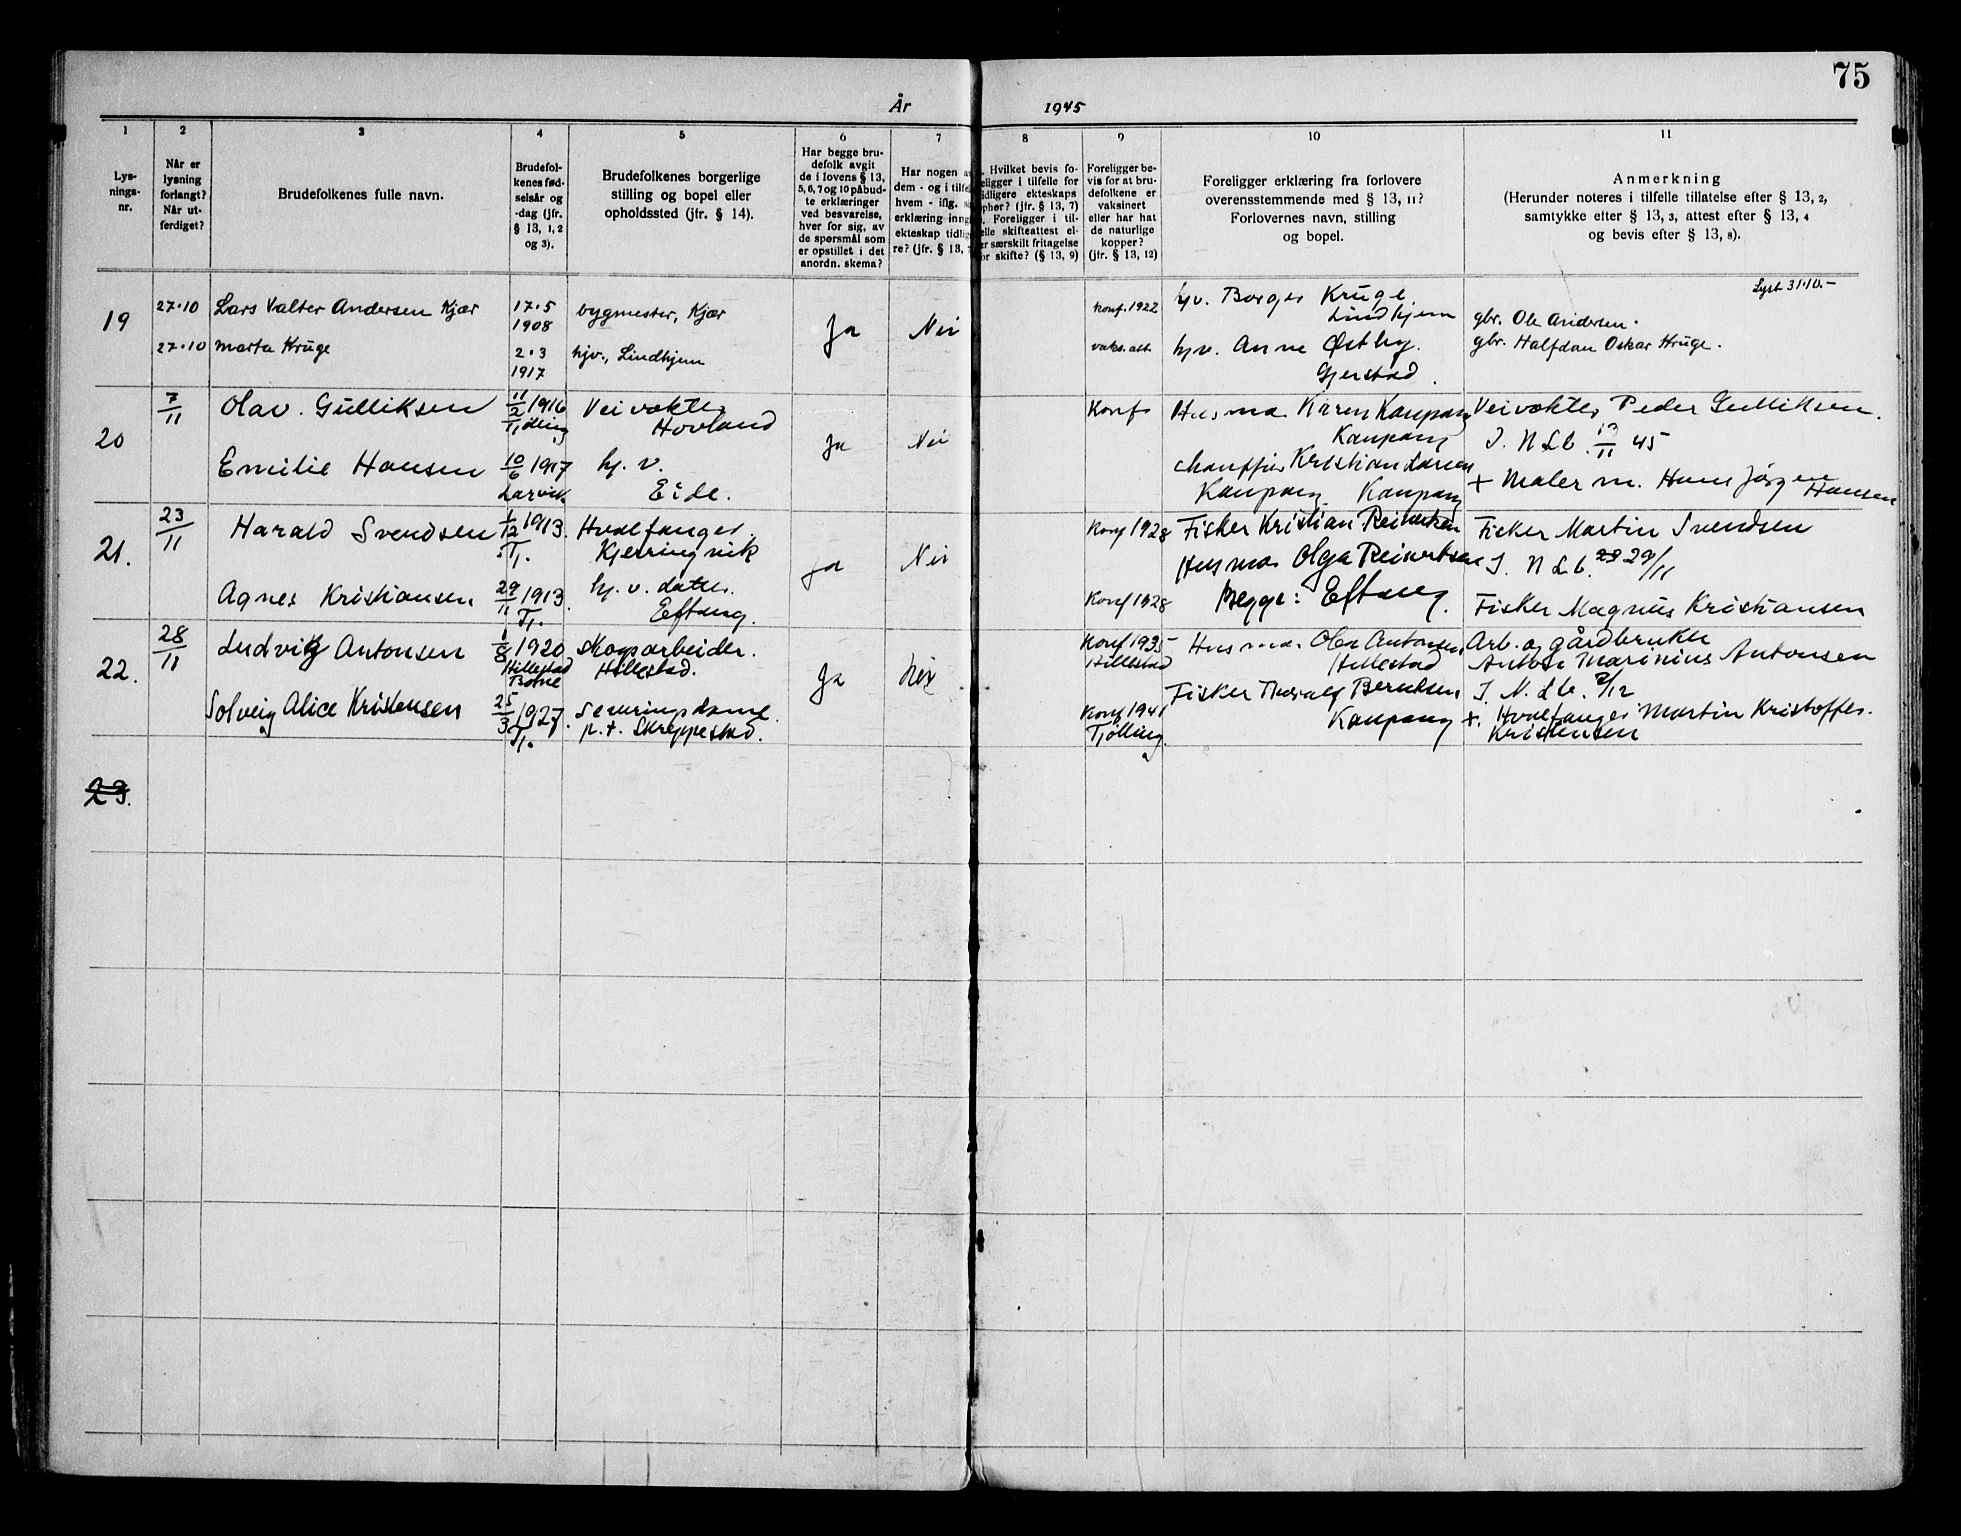 75
År 1945
1 2 3 4 5 6 7 8 9 10 11
Lys-
nings-
nr.
Når er
lysning
forlangt?
Når ut-
ferdiget?
Brudefolkenes fulle navn.
Brudefol-
kenes fød-
selsår og
-dag (jfr.
§ 13, 1, 2
og 3).
Brudefolkenes borgerlige
stilling og bopel eller
opholdssted (jfr. § 14).
Har begge bru-
defolk avgit
de i lovens § 13,
5, 6, 7 og 10 påbud-
te erklæringer
ved besvarelse,
hver for sig, av
de spørsmål som
er opstillet i det
anordn. skema?
Har nogen a
dem - og i tilfel
hvem - iflg.
erklæring inng
ekteskap tidlig
re? (jfr. § 13,
Hvilket bevis fo-
eligger i tilfelle for
idligere ekteskaps
phør? (jfr. § 13, 7)
Foreligger i til-
elle skifteattest el-
er særskilt fritagelse
or skifte? (§ 13, 9)
Foreligger be-
vis for at bru-
defolkene er
vaksinert
eller har hat
de naturlige
kopper?
(jfr. § 13, 12)
Foreligger erklæring fra forlovere
overensstemmende med § 13, 11?
Forlovernes navn, stilling
og bopel.
Anmerkning
(Herunder noteres i tilfelle tillatelse efter § 13, 2,
samtykke efter § 13, 3, attest efter § 13, 4
og bevis efter § 13, 8).
19
27·10 Lars Valter Andersen Kjær
17·5
1908
bygmester, Kjær
27·10 Marta Kruge
2·3
1917
hjv., Lindhjem
Ja
Nei
Konf. 1922
vaks. att.
hjv. Borges Kruge.
Lindhjem
hjv. Anne Østby.
Gjerstad.
Lyst 31·10.-
gbr. Ole Andersen.
gbr. Halfdan Oskar Kruge.
20
7/11
Olav. Gulliksen
11/2 1916
Tjølling
Veivokter
Hovland
Emilie Hansen
10/6 1917
Larvik
hj. v.
Eide.
Ja
Nei
Konf
Husmor Karen Kaupang
Kaupang
Chauffør Kristian Larsen
Kaupang Kaupang
Veivokter Peder Gulliksen.
I. N L b. 45
+ Maler m. Hans Jørgen
Hansen
21.
23/11
Harald Svendsen
1/12 1913.
Tj.
Hvalfanger.
Kjerringvik
Agnes Kristiansen
29/11 1913.
Tj.
hj. v. datter.
Eftang.
Ja
Nei
Konf 1928
Konf 1928
Fisker Kristian Reinertsen
Husmor Olga Reinertsen
Begge: Eftang.
Fisker Martin Svendsen
I. N L b. 29/11
Fisker Magnus Kristiansen
22.
28/11
Ludvig Antonsen
1/8 1920
Hillestad
Botne
Skogsarbeider.
Hillestad.
Solveig Alice Kristensen
25/3 1927.
Tj.
Serveringsdame
p. t. Skreppestad.
Ja
Nei
Konf 1935
Hillestad
Konf 1941
Tjølling
Husmor Olea Antonsen
Hillestad
Fisker Thorvald Berntsen
Kaupang
Arb. og gårdbruker
Anton Marinius Antonsen
I. N. Lb. 2/12
+. Hvalfanger Martin Kristoffer.
Kristensen
23.